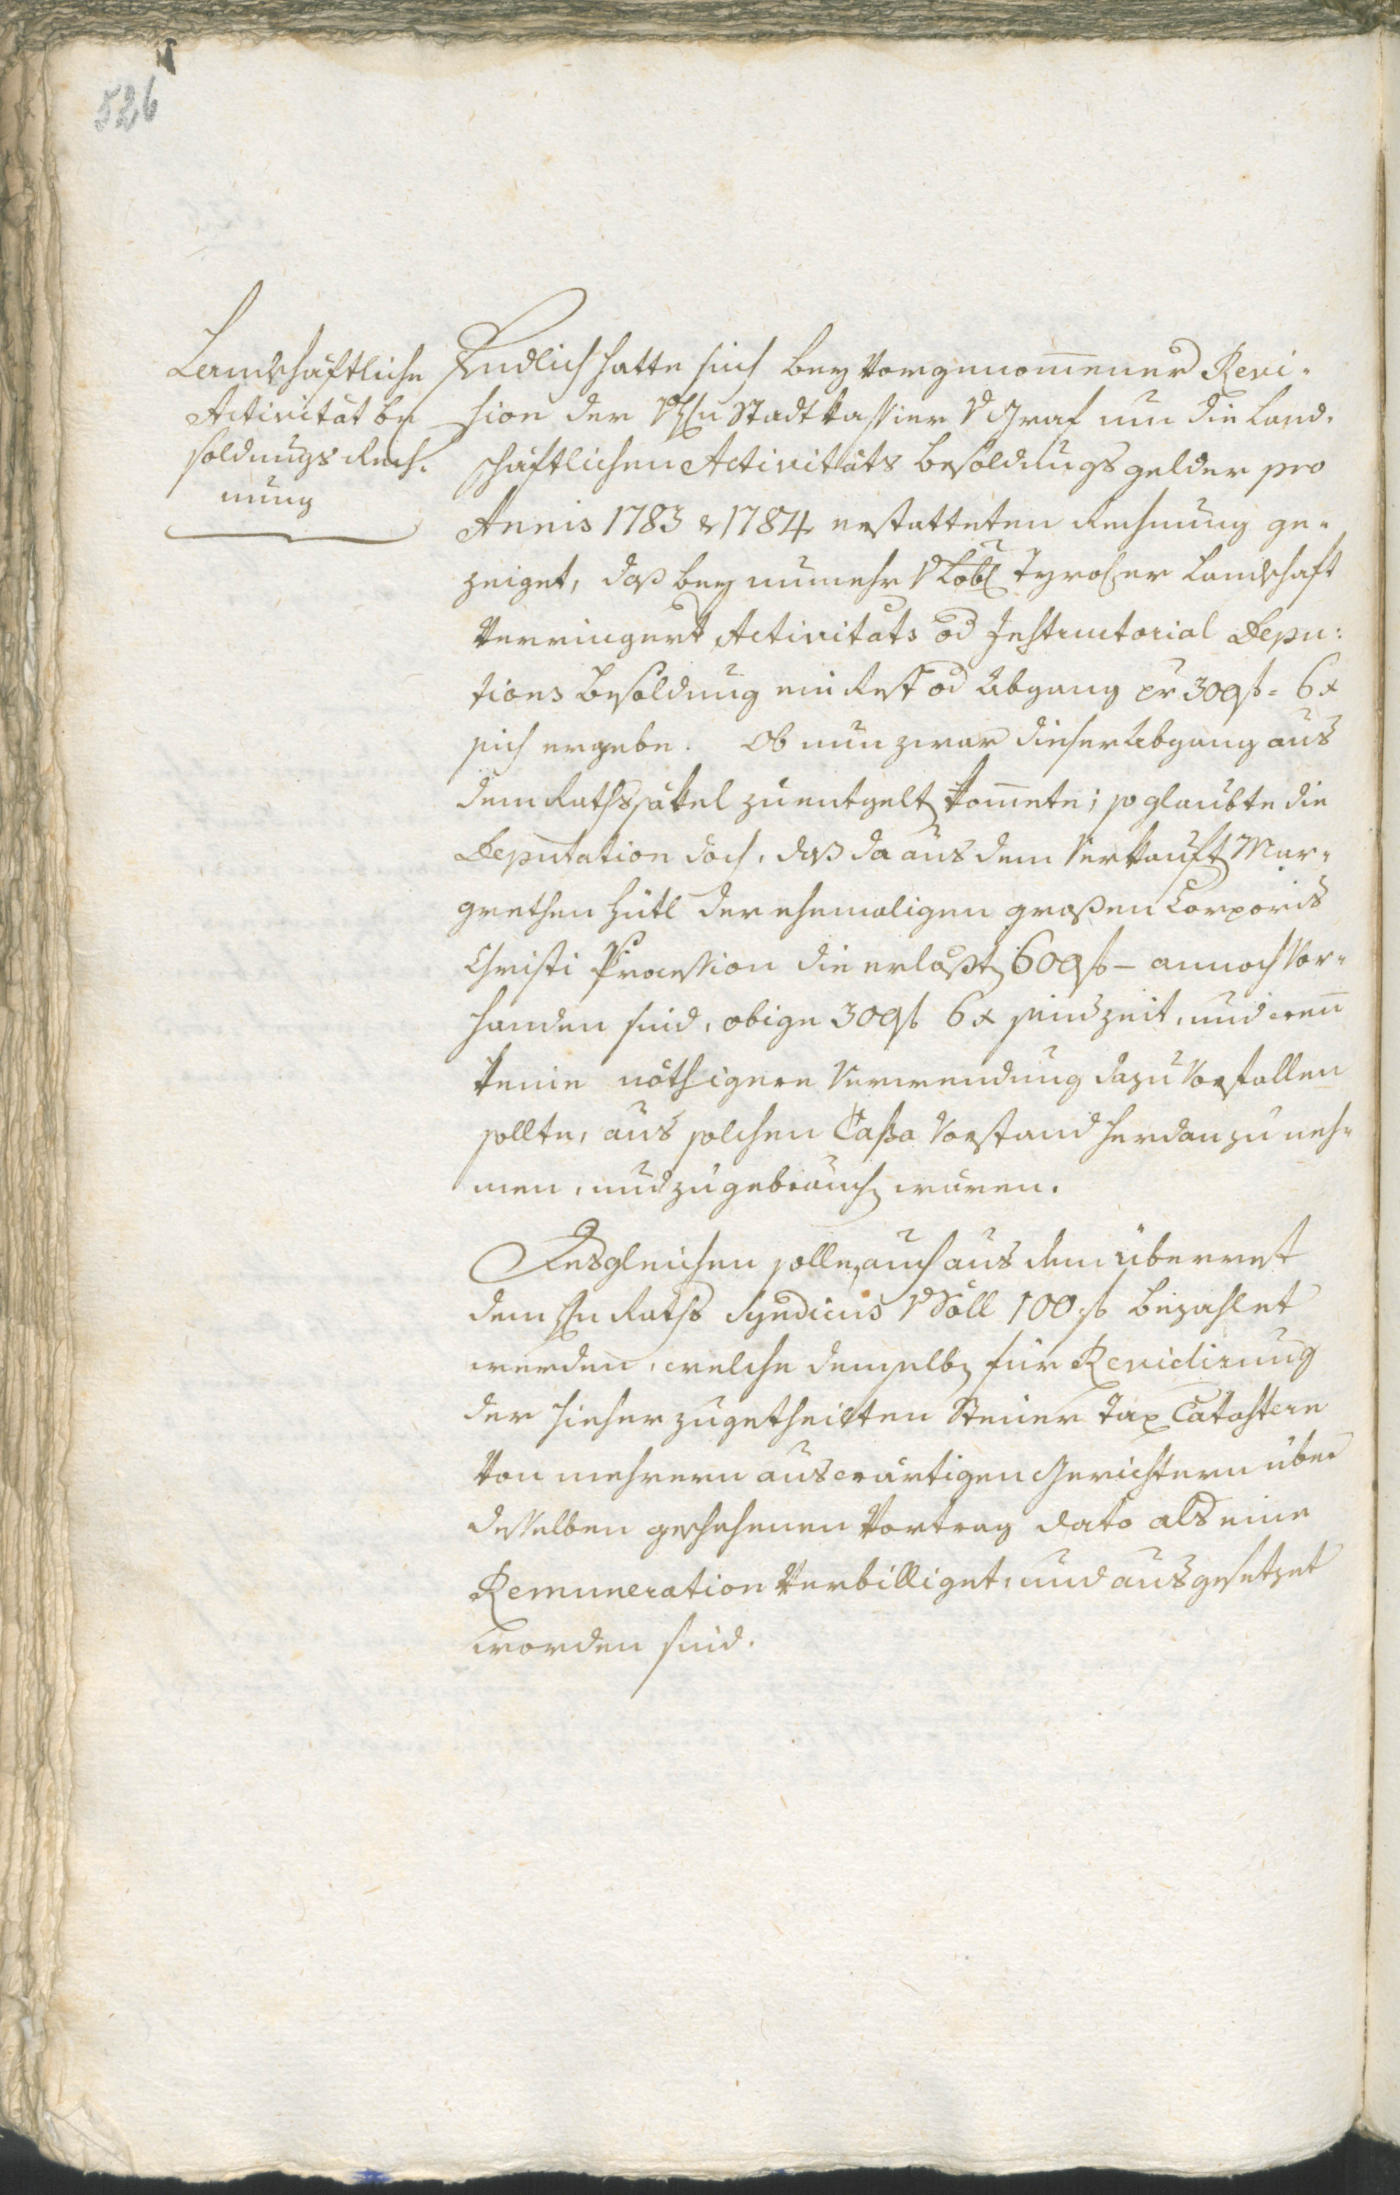 526
Landschäftliche
Activität be
soldungs Rech-
nung
Endlich hatte sich bey vorgenommener Revi-
sion der v H Stadtkassier v Graf um die Land-
schäftlichen Activitäts Besoldungsgelder pro
Annis 1783 & 1784 erstatteten Rechnung ge-
zeiget, daß bey nunmehr v Löbl Tyroler Landschaft
verringert Activitäts od Instructorial Depu-
tions Besoldung ein Rest od Abgang pr 309 f - 6 x
sich ergebe. Ob nun zwar dieser Abgang aus
dem Rathssäkel zu entgelt kommete; so glaubte die
Deputation doch, daß da aus dem verkauft Mar-
grethen Hütl der ehemaligen großen Corporis
Christi Procession die erlößt 609 f – annoch vor-
handen sind, obige 309 f 6 x seinerzeit, und wenn
keine nöthigere Verwendung dazu vorfallen
sollte, aus solchen Caßa Vorstand herdan zu neh-
men, und zu gebrauch wären.
Desgleichen solle auch aus dem überrest
dem H Raths Syndicus v Söll 100 f bezahlet
werden, welche demselb für Revidirung
der hieher zugetheilten Steuer Tax Catastern
von mehrern auswärtigen Gerichtern über
desselben geschehenen Vortrag dato als eine
Remuneration verbilliget, und ausgesetzet
worden sind.